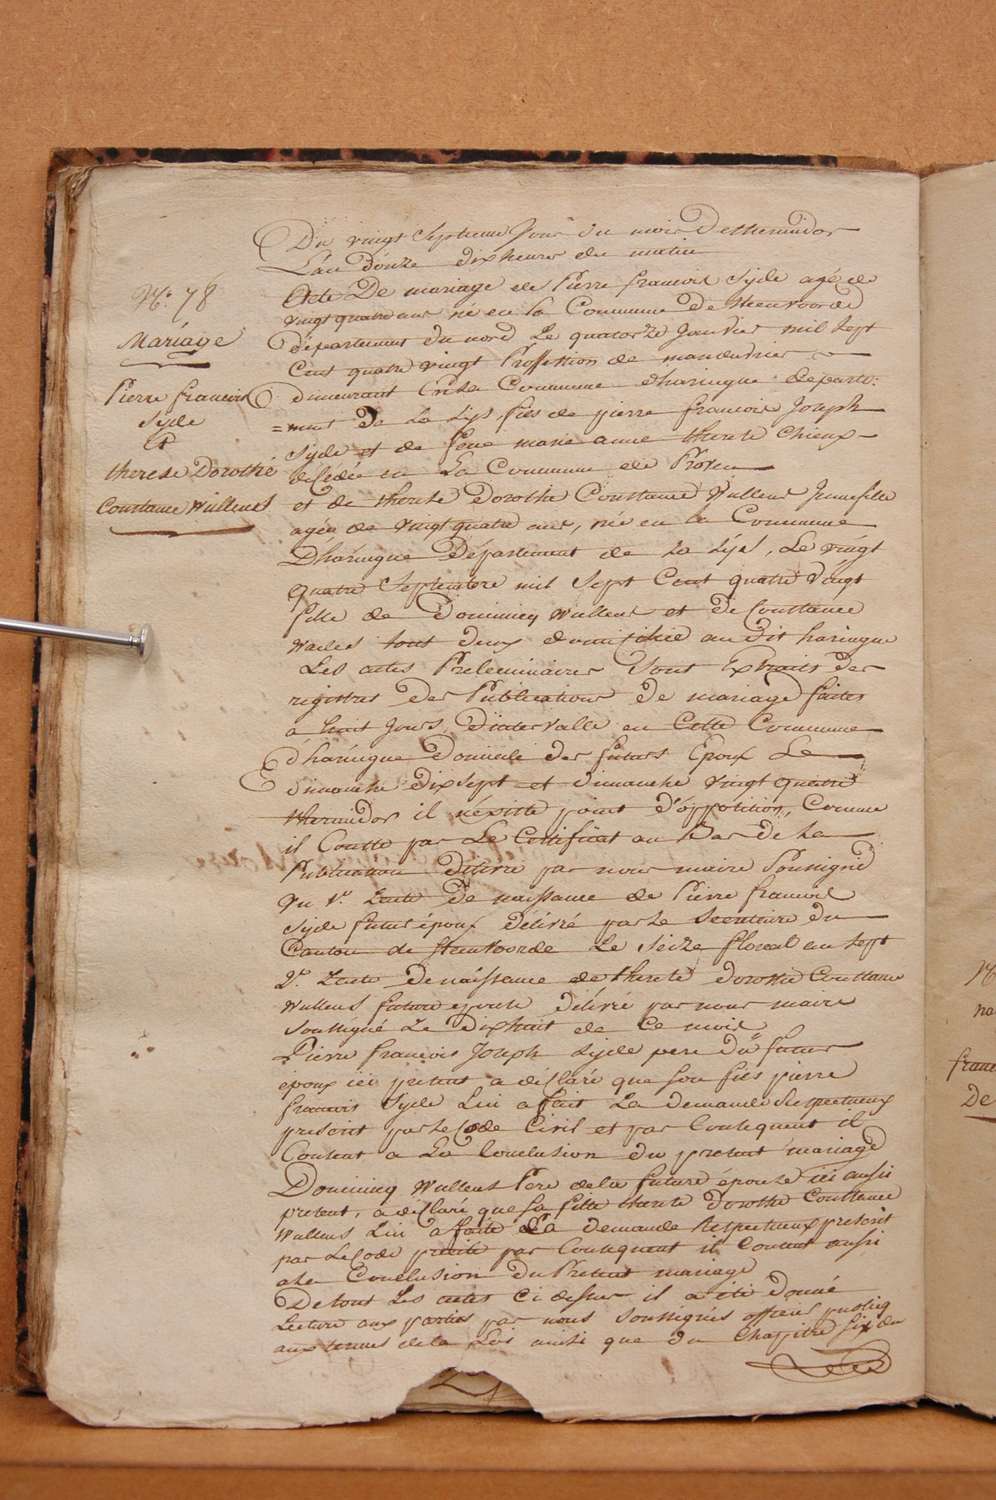 No. 78
Mariage
Pierre francois
Syde
Et
therese Dorothé
Constance Wullens
Du vingt Septieme Jour du mois Dethermidor
L'an Douze dix heures du matin
Acte De mariage de Pierre francois Syde agé de
vingt quatre ans né en la Commune de Steenvoorde
département du nord Le quatorze Janvier mil sept
Cent quatre vingt Proffession de
demeurant Commune d'haringue departe:
=ment de La Lys, fils de pierre francois Joseph
Syde et de feue marie anne therese Chieux
décédée en La Commune de Proven
et de therese Dorothe Constance Wullens Jeune fille
agée de vingt quatre ans, née en la Commune
D'haringue Département de La Lys, Le vingt
quatre Septembre mil Sept Cent quatre vingt
fille de Dominicq Wullens et de Constance
tous deux domicilié au dit haringue
Les actes Preleminaires Sont Extraits des
registres des Publications de mariage faites
a huit Jours D'intervalle en Cette Commune
d'haringue Domicile des futurs Epoux Le
Dimanche dix sept et dimanche vingt quatre
thermidor il n'existe point d'oppotition, Comme
il Conste par Le Certificat au Bas de La
Publication délivré par nous maire Soussigné
Vu 1o. Lacte De naissance de Pierre francois
Syde futur époux délivré par Le Secretaire du
Canton de Steenvoorde Le Seize floreal an sept
2o. Lacte de naissance de therese dorothe Constance
Wullens future epouse délivré par nous maire
Soussigné Le dixhuit de Ce mois
Pierre francois Joseph Syde pere du futur
époux ici present a declaré que son fils pierre
francois Syde Lui a fait La demande Respectueux
prescrit par Le Code Civil et par Consequent il
Consent a La Conclusion du present mariage
Dominicq Wullens Pere de la future épouse ici aussi
present, a déclaré que sa fille therese Dorothe Constance
Wullens Lui a faite La demande Respectueux prescrit
par Le Code par Consequent il Consent aussi
a La Conclusion Du Present mariage
De tout Les actes Ci dessus il a été Donné
Lecture aux parties par nous Soussignés officier publicq
aux termes de la Loi ainsi que du Chapitre Six du